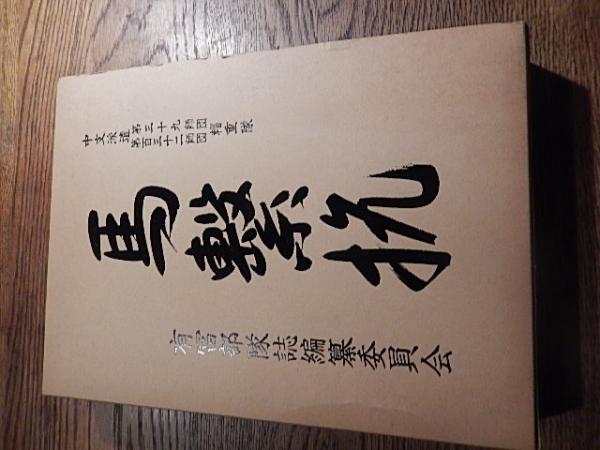 中支派遣第三十九師団
第百三十二師団
輜重隊
馬繋杭
有信部隊誌編纂委員会